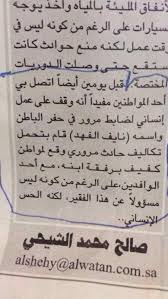 لأنفاق المليئة بالمياه وأخذ يوجه
لسيارات على الرغم من كونه ليس في
قت عمل لكنه منع حوادث كانت
ستقع حتى وصلت الدوريات
المختصة. قبل يومين أيضاً اتصل بي
أحد المواطنين مفيداً أنه وقف على عمل
إنساني لضابط مرور في حفر الباطن
واسمه (نايف الفهد) قام بتحمل
تكاليف حادث مروري وقع لمواطن
كفيف برفقة ابنه، مع أحد
الوافدين على الرغم من كونه ليس
مسؤولاً عن هذا الفقير. لكنه الحس
الإنساني..
صالح محمد الشيحي
alshehy@alwatan.com.sa